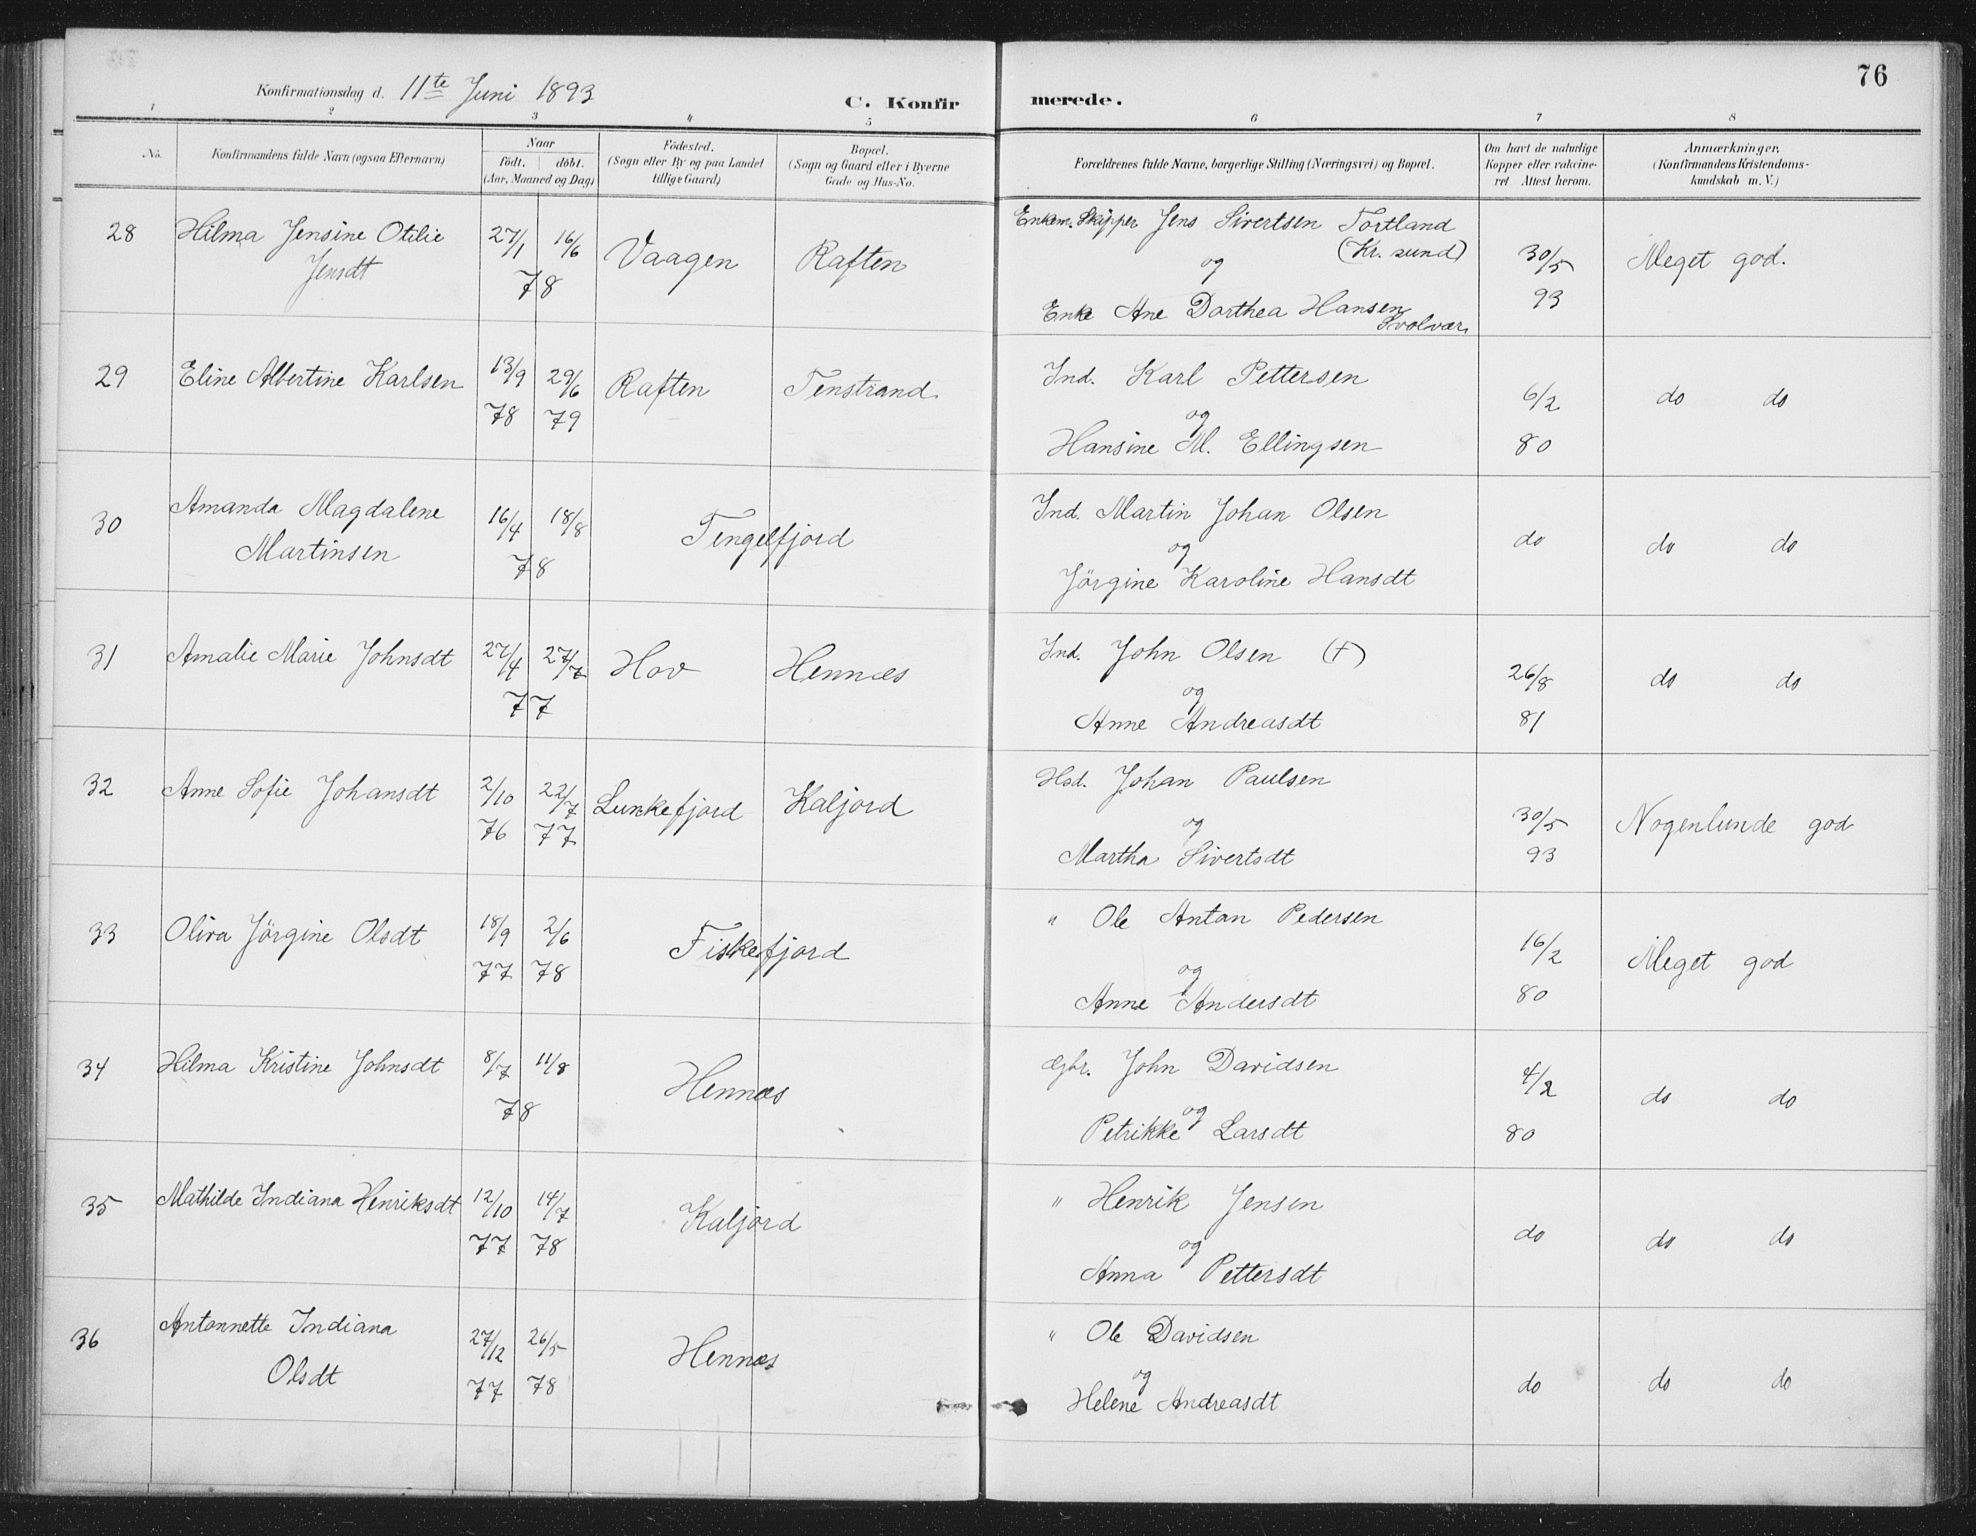 76
Konfirmationsdag d. 11te Juni 1893
C. Konfir merede.
1 2 3 4 5 6 7 8
No. Konfirmandens fulde Navn (ogsaa Efternavn) Naar født. døbt. (Aar, Maaned og Dag) Fødested. (Sogn eller By og paa Landet tillige Gaard) Bopæl. (Sogn og Gaard eller i Byerne Gade og Hus-No. Forældrenes fulde Navne, borgerlige Stilling (Næringsvei) og Bopæl. Om havt de naturlige Kopper eller vakcineret Attest herom. Anmærkninger. (Konfirmandens Kristendomskundskab m. V.)
28 Hilma Jensine Otilie 27/1 16/6 Vaagen Raften Enkem. Skipper Jens Sivertsen Tortland
Jensdt 78 (Kr. sund) 30/5 Meget god.
og 93
Enke Ane Dorthea Hansen
Svolvær
29 Eline Albertine Karlsen 13/9 29/6 Raften Tenstrand Ind. Karl Pettersen 6/2 do do
78 79 og
Hansine M. Ellingsen 80
30 Amanda Magdalene 16/4 18/8 Tengelfjord Ind. Martin Johan Olsen do do do
Martinsen 78 og
Jörgine Karoline Hansdt
31 Amalie Marie Johnsdt 27/4 27/7 Hov Hennæs Ind. John Olsen (†) 26/8 do do
77 og
Anne Andreasdt 81
32 Anne Sofie Johansdt 2/10 22/7 Lunkefjord Kaljord Hsd. Johan Paulsen 30/5 Nogenlunde god
76 77 og
Martha Sivertsdt 93
33 Oliva Jörgine Olsdt 18/9 2/6 Fiskefjord " Ole Antan Pedersen 16/2 Meget god
77 78 og
Anne Andersdt 80
34 Hilma Kristine Johnsdt 8/7 11/8 Hennæs Gbr. John Davidsen 4/2 do do
78 og
Petrikke Larsdt 80
35 Mathilde Indiana Henriksdt 12/10 14/7 Kaljord " Henrik Jensen do do do
77 78 og
Anna Pettersdt
36 Antonnette Indiana 27/12 26/5 Hennæs " Ole Davidsen do do do
Olsdt 77 78 og
Helene Andreasdt